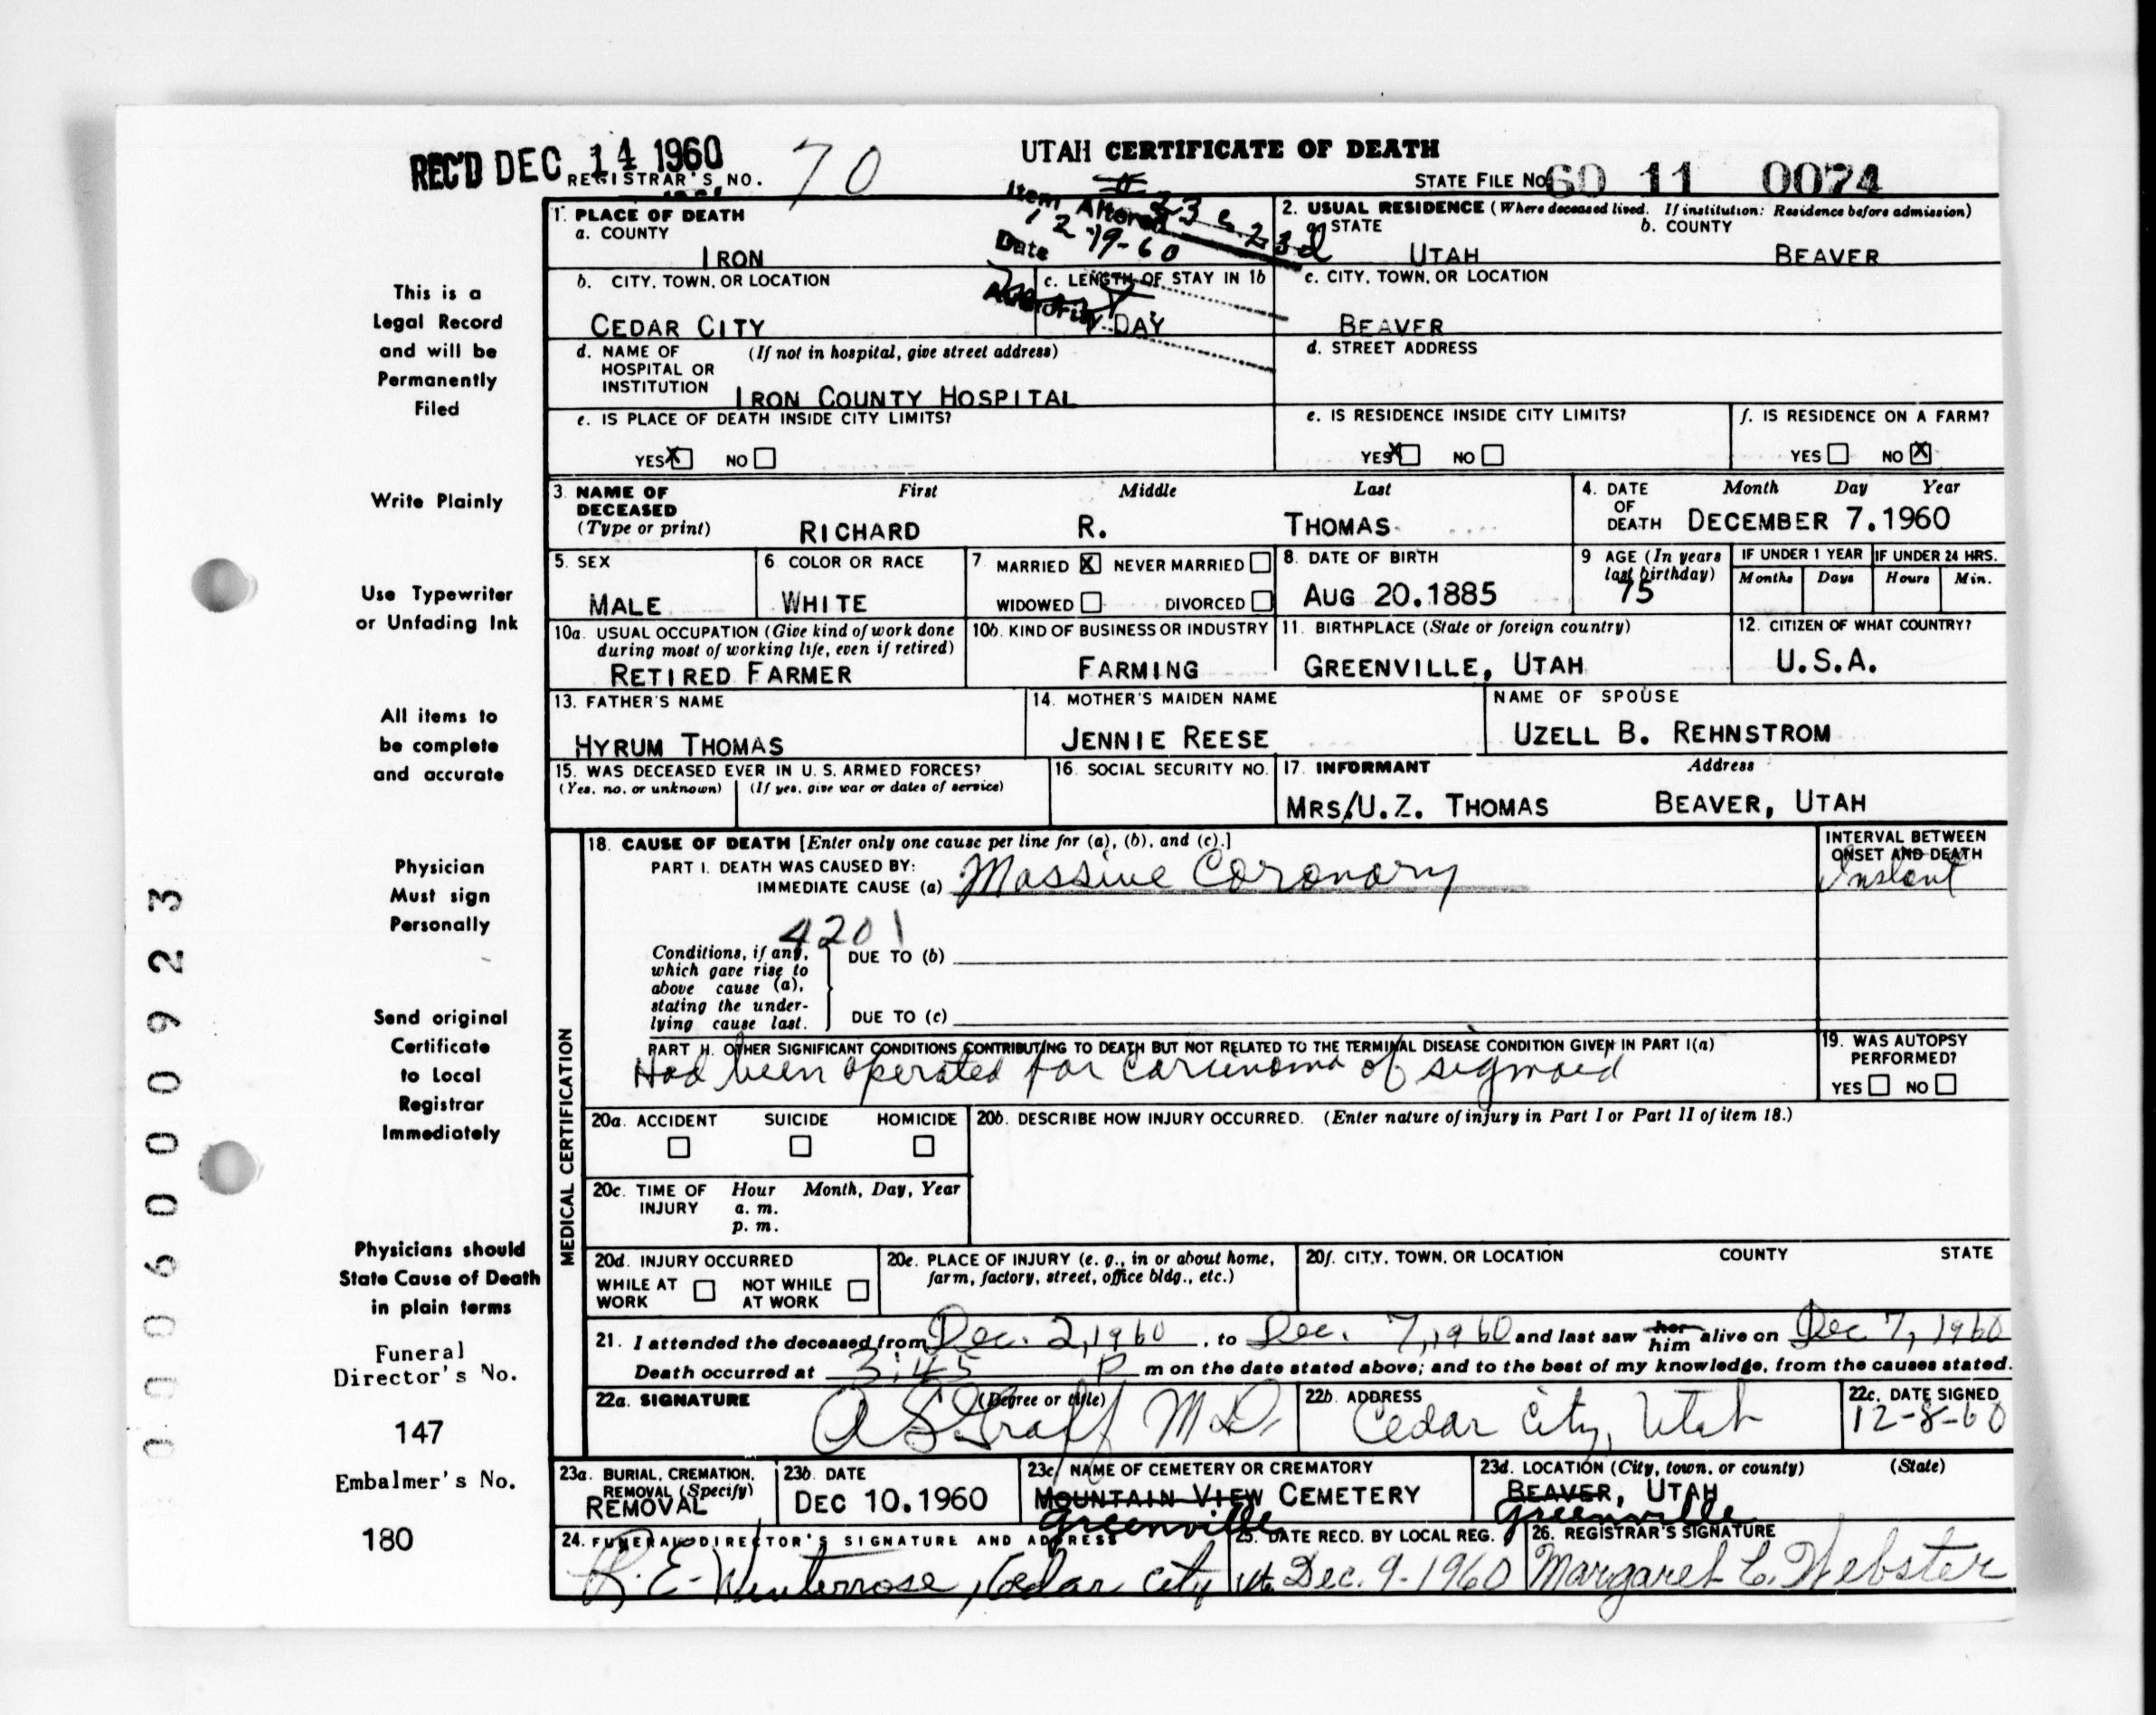 REC'D DEC 14 1960
REGISTRAR'S NO. 70
UTAH CERTIFICATE OF DEATH
STATE FILE NO. 60 11 0074
Item Altered # 23c 23d
Date 12-19-60
Authority
This is a
Legal Record
and will be
Permanently
Filed
Write Plainly
Use Typewriter
or Unfading Ink
All items to
be complete
and accurate
Physician
Must sign
Personally
Send original
Certificate
to Local
Registrar
Immediately
Physicians should
State Cause of Death
in plain terms
Funeral
Director's No.
147
Embalmer's No.
180
000600923
1. PLACE OF DEATH
a. COUNTY
IRON
2. USUAL RESIDENCE (Where deceased lived. If institution: Residence before admission)
a. STATE b. COUNTY
UTAH BEAVER
b. CITY, TOWN, OR LOCATION
CEDAR CITY
c. LENGTH OF STAY IN 1b
DAY
c. CITY, TOWN, OR LOCATION
BEAVER
d. NAME OF (If not in hospital, give street address)
HOSPITAL OR
INSTITUTION IRON COUNTY HOSPITAL
d. STREET ADDRESS
e. IS PLACE OF DEATH INSIDE CITY LIMITS?
YES X NO
e. IS RESIDENCE INSIDE CITY LIMITS?
YES X NO
f. IS RESIDENCE ON A FARM?
YES NO X
3. NAME OF First Middle Last
DECEASED
(Type or print) RICHARD R. THOMAS
4. DATE Month Day Year
OF
DEATH DECEMBER 7.1960
5. SEX
MALE
6 COLOR OR RACE
WHITE
7 MARRIED X NEVER MARRIED
WIDOWED DIVORCED
8. DATE OF BIRTH
AUG 20.1885
9 AGE (In years
last birthday)
75
IF UNDER 1 YEAR IF UNDER 24 HRS.
Months Days Hours Min.
10a. USUAL OCCUPATION (Give kind of work done
during most of working life, even if retired)
RETIRED FARMER
10b. KIND OF BUSINESS OR INDUSTRY
FARMING
11. BIRTHPLACE (State or foreign country)
GREENVILLE, UTAH
12. CITIZEN OF WHAT COUNTRY?
U.S.A.
13. FATHER'S NAME
HYRUM THOMAS
14. MOTHER'S MAIDEN NAME
JENNIE REESE
NAME OF SPOUSE
UZELL B. REHNSTROM
15. WAS DECEASED EVER IN U. S. ARMED FORCES?
(Yes, no, or unknown) (If yes, give war or dates of service)
16. SOCIAL SECURITY NO.
17. INFORMANT Address
MRS/U.Z. THOMAS BEAVER, UTAH
MEDICAL CERTIFICATION
18. CAUSE OF DEATH [Enter only one cause per line for (a), (b), and (c).]
PART I. DEATH WAS CAUSED BY:
IMMEDIATE CAUSE (a) Massive Coronary
INTERVAL BETWEEN
ONSET AND DEATH
Instant
4201
Conditions, if any,
which gave rise to
above cause (a),
stating the under-
lying cause last.
DUE TO (b)
DUE TO (c)
PART II. OTHER SIGNIFICANT CONDITIONS CONTRIBUTING TO DEATH BUT NOT RELATED TO THE TERMINAL DISEASE CONDITION GIVEN IN PART I(a)
Had been operated for carcinoma of sigmoid
19. WAS AUTOPSY
PERFORMED?
YES NO
20a. ACCIDENT SUICIDE HOMICIDE
20b. DESCRIBE HOW INJURY OCCURRED. (Enter nature of injury in Part I or Part II of item 18.)
20c. TIME OF Hour Month, Day, Year
INJURY a. m.
p. m.
20d. INJURY OCCURRED
WHILE AT NOT WHILE
WORK AT WORK
20e. PLACE OF INJURY (e. g., in or about home,
farm, factory, street, office bldg., etc.)
20f. CITY, TOWN, OR LOCATION COUNTY STATE
21. I attended the deceased from Dec. 2, 1960, to Dec. 7, 1960 and last saw her him alive on Dec 7, 1960
Death occurred at 3:45 P m on the date stated above; and to the best of my knowledge, from the causes stated.
22a. SIGNATURE (Degree or title)
A S Graff M D.
22b. ADDRESS
Cedar City, Utah
22c. DATE SIGNED
12-8-60
23a. BURIAL, CREMATION,
REMOVAL (Specify)
REMOVAL
23b. DATE
DEC 10.1960
23c. NAME OF CEMETERY OR CREMATORY
MOUNTAIN VIEW CEMETERY
Greenville
23d. LOCATION (City, town, or county) (State)
BEAVER, UTAH
Greenville
24. FUNERAL DIRECTOR'S SIGNATURE AND ADDRESS
R. E. Winterrose, Cedar City Ut.
25. DATE RECD. BY LOCAL REG.
Dec. 9-1960
26. REGISTRAR'S SIGNATURE
Margaret L. Webster